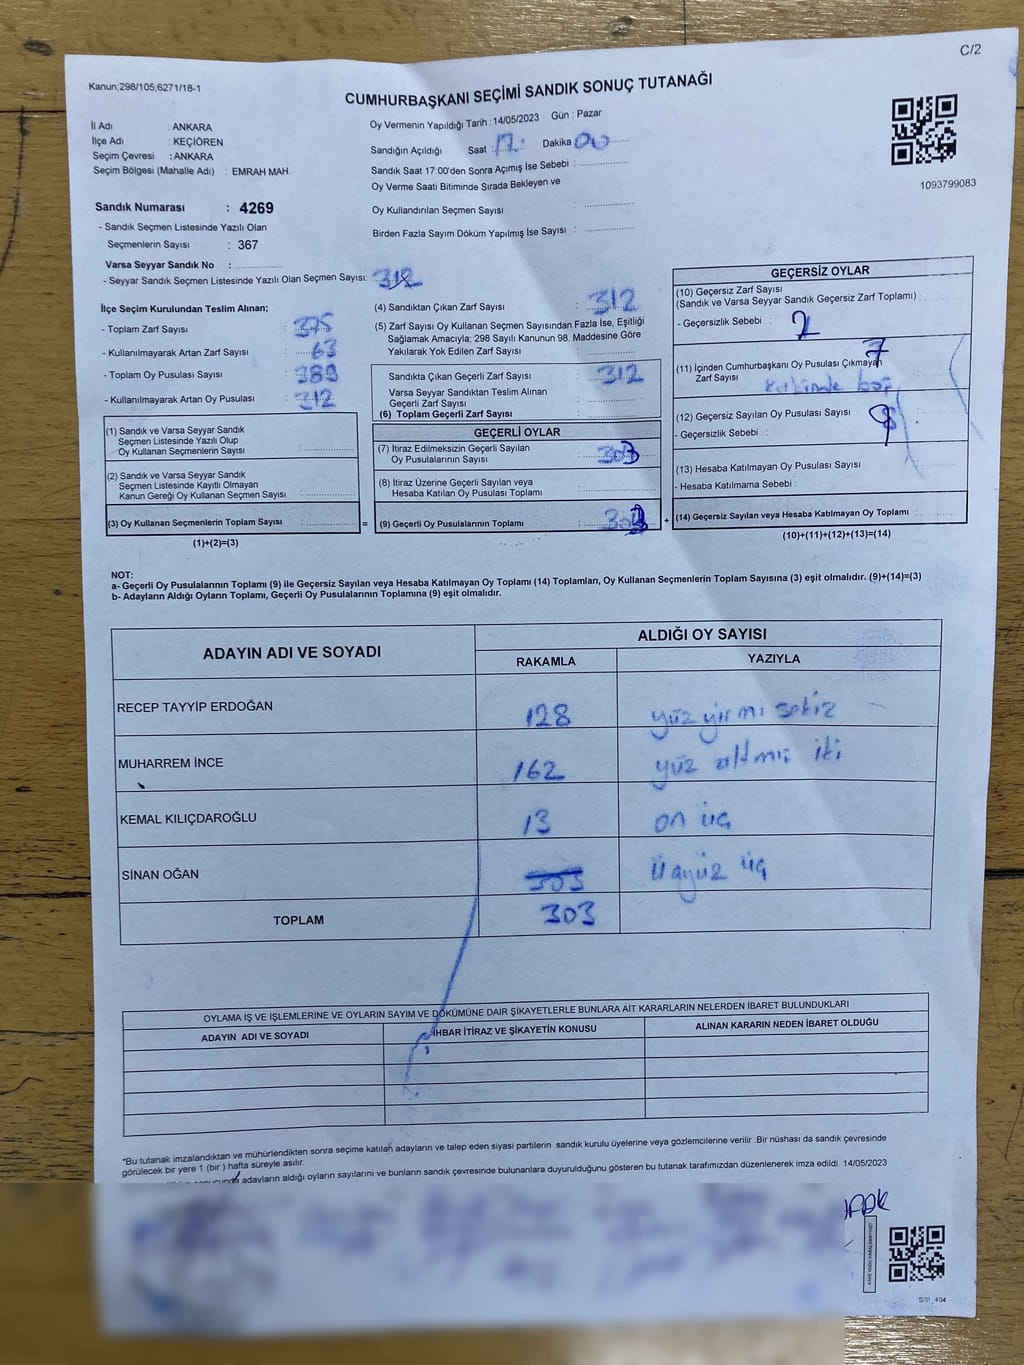 C/2
Kanun;298/105;6271/18-1
CUMHURBAŞKANI SEÇİMİ SANDIK SONUÇ TUTANAĞI
İl Adı : ANKARA
İlçe Adı : KEÇİÖREN
Seçim Çevresi : ANKARA
Seçim Bölgesi (Mahalle Adı) : EMRAH MAH.
Oy Vermenin Yapıldığı Tarih : 14/05/2023 Gün : Pazar
Sandığın Açıldığı Saat : 17: Dakika 00
Sandık Saat 17:00'den Sonra Açımış İse Sebebi :
Oy Verme Saati Bitiminde Sırada Bekleyen ve
Oy Kullandırılan Seçmen Sayısı :
Birden Fazla Sayım Döküm Yapılmış İse Sayısı :
1093799083
Sandık Numarası : 4269
- Sandık Seçmen Listesinde Yazılı Olan
Seçmenlerin Sayısı : 367
Varsa Seyyar Sandık No :
- Seyyar Sandık Seçmen Listesinde Yazılı Olan Seçmen Sayısı: 312
İlçe Seçim Kurulundan Teslim Alınan;
- Toplam Zarf Sayısı : 375
- Kullanılmayarak Artan Zarf Sayısı : 63
- Toplam Oy Pusulası Sayısı : 380
- Kullanılmayarak Artan Oy Pusulası : 312
(1) Sandık ve Varsa Seyyar Sandık
Seçmen Listesinde Yazılı Olup
Oy Kullanan Seçmenlerin Sayısı :
(2) Sandık ve Varsa Seyyar Sandık
Seçmen Listesinde Kayıtlı Olmayan
Kanun Gereği Oy Kullanan Seçmen Sayısı :
(3) Oy Kullanan Seçmenlerin Toplam Sayısı :
(1)+(2)=(3)
(4) Sandıktan Çıkan Zarf Sayısı : 312
(5) Zarf Sayısı Oy Kullanan Seçmen Sayısından Fazla İse, Eşitliği
Sağlamak Amacıyla; 298 Sayılı Kanunun 98. Maddesine Göre
Yakılarak Yok Edilen Zarf Sayısı :
Sandıkta Çıkan Geçerli Zarf Sayısı : 312
Varsa Seyyar Sandıktan Teslim Alınan
Geçerli Zarf Sayısı :
(6) Toplam Geçerli Zarf Sayısı :
GEÇERLİ OYLAR
(7) İtiraz Edilmeksizin Geçerli Sayılan
Oy Pusulalarının Sayısı : 303
(8) İtiraz Üzerine Geçerli Sayılan veya
Hesaba Katılan Oy Pusulası Toplamı :
= (9) Geçerli Oy Pusulalarının Toplamı : 303 +
GEÇERSİZ OYLAR
(10) Geçersiz Zarf Sayısı
(Sandık ve Varsa Seyyar Sandık Geçersiz Zarf Toplamı) :
- Geçersizlik Sebebi : 2
(11) İçinden Cumhurbaşkanı Oy Pusulası Çıkmayan 7
Zarf Sayısı
(12) Geçersiz Sayılan Oy Pusulası Sayısı :
- Geçersizlik Sebebi :
(13) Hesaba Katılmayan Oy Pusulası Sayısı :
- Hesaba Katılmama Sebebi :
(14) Geçersiz Sayılan veya Hesaba Katılmayan Oy Toplamı :
(10)+(11)+(12)+(13)=(14)
NOT:
a- Geçerli Oy Pusulalarının Toplamı (9) ile Geçersiz Sayılan veya Hesaba Katılmayan Oy Toplamı (14) Toplamları, Oy Kullanan Seçmenlerin Toplam Sayısına (3) eşit olmalıdır. (9)+(14)=(3)
b- Adayların Aldığı Oyların Toplamı, Geçerli Oy Pusulalarının Toplamına (9) eşit olmalıdır.
ADAYIN ADI VE SOYADI
ALDIĞI OY SAYISI
RAKAMLA YAZIYLA
RECEP TAYYİP ERDOĞAN 128 yüz yirmi sekiz
MUHARREM İNCE 162 yüz altmış iki
KEMAL KILIÇDAROĞLU 13 on üç
SİNAN OĞAN 303 Üçyüz üç
TOPLAM 303
OYLAMA İŞ VE İŞLEMLERİNE VE OYLARIN SAYIM VE DÖKÜMÜNE DAİR ŞİKAYETLERLE BUNLARA AİT KARARLARIN NELERDEN İBARET BULUNDUKLARI
ADAYIN ADI VE SOYADI İHBAR İTİRAZ VE ŞİKAYETİN KONUSU ALINAN KARARIN NEDEN İBARET OLDUĞU
*Bu tutanak imzalandıktan ve mühürlendikten sonra seçime katılan adayların ve talep eden siyasi partilerin sandık kurulu üyelerine veya gözlemcilerine verilir .Bir nüshası da sandık çevresinde
görülecek bir yere 1 (bir ) hafta süreyle asılır.
adayların aldığı oyların sayılarını ve bunların sandık çevresinde bulunanlara duyurulduğunu gösteren bu tutanak tarafımızdan düzenlenerek imza edildi. 14/05/2023
SSI_404